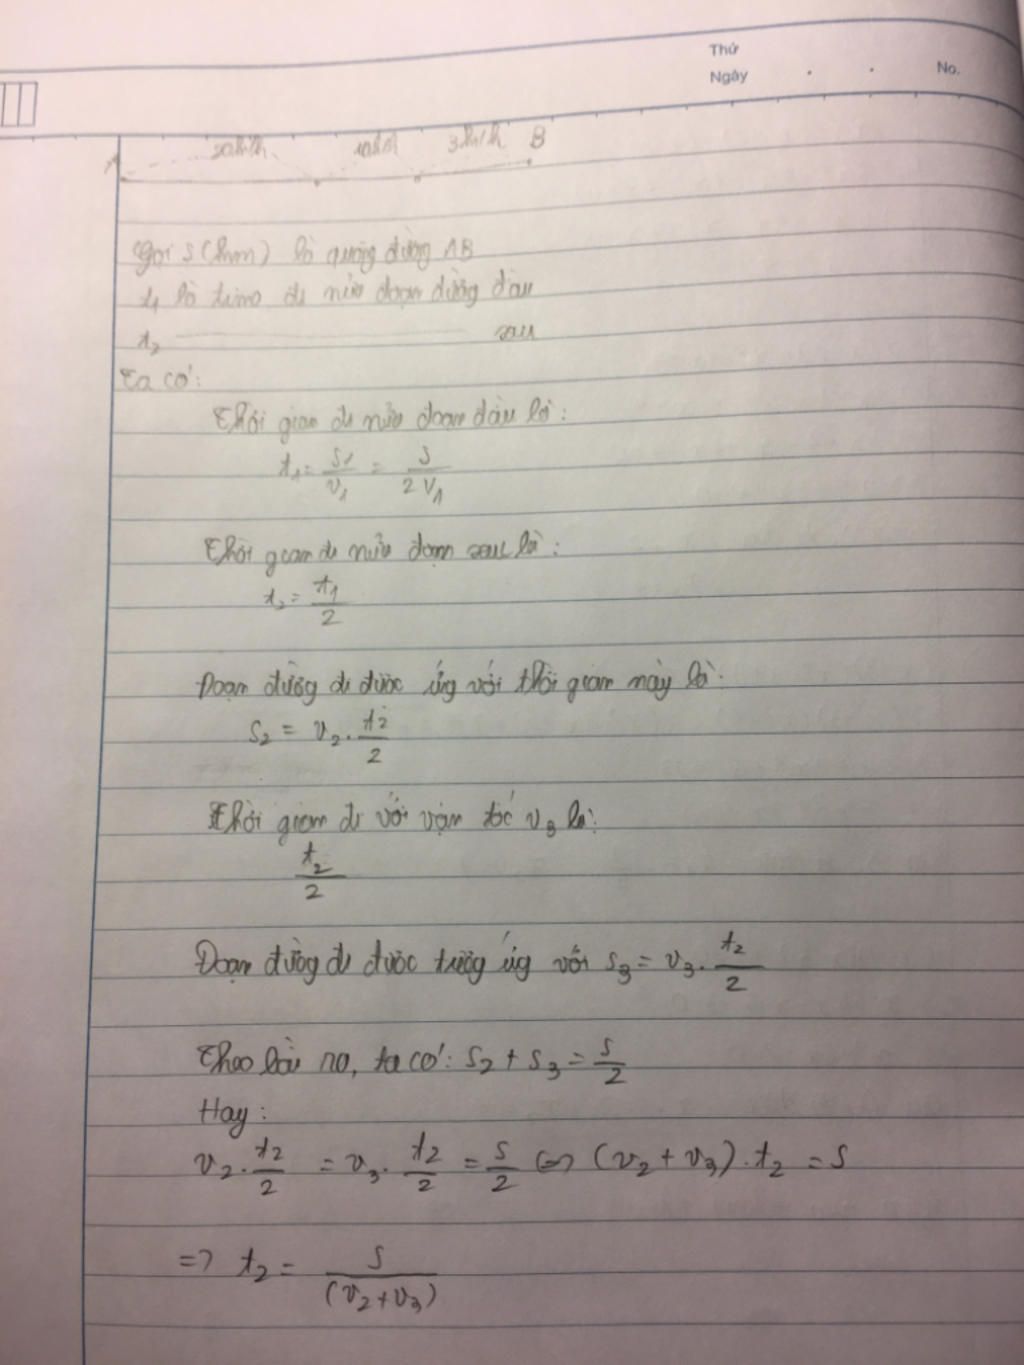 Thứ
Ngày . . No.
A 20km/h 10km/h 3km/h B
Gọi S (km) là quãng đường AB
t₁ là time đi nửa đoạn đường đầu
t₂ ———————— sau
Ta có:
Thời gian đi nửa đoạn đầu là:
t₁ = S₁/v₁ = S/2V₁
Thời gian đi nửa đoạn sau là:
t₂ = t₁/2
Đoạn đường đi được ứg với thời gian này là:
S₂ = v₂ . t₂/2
Thời gian đi với vận tốc v₃ là:
t₂/2
Đoạn đường đi được tươg ứg với S₃ = v₃ . t₂/2
Theo bài ra, ta có: S₂ + S₃ = S/2
Hay:
v₂ . t₂/2 = v₃ . t₂/2 = S/2 <=> (v₂ + v₃) . t₂ = S
=> t₂ = S/(v₂+v₃)